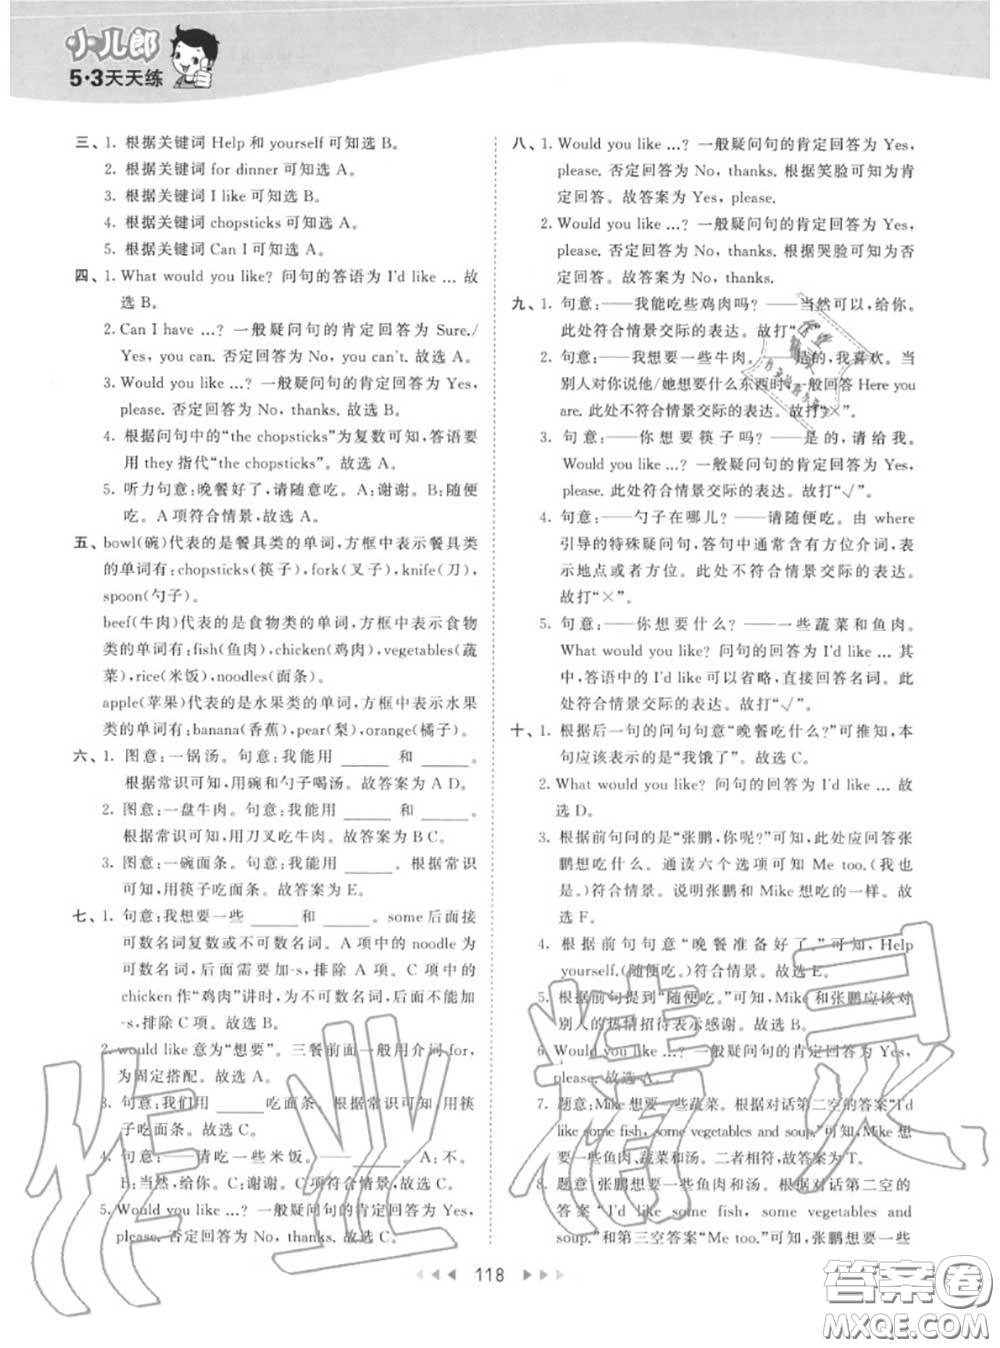 小儿郎
5·3天天练
三、1. 根据关键词 Help 和 yourself 可知选 B。
2. 根据关键词 for dinner 可知选 A。
3. 根据关键词 I like 可知选 B。
4. 根据关键词 chopsticks 可知选 A。
5. 根据关键词 Can I 可知选 A。
四、1. What would you like? 问句的答语为 I'd like … 故
选 B。
2. Can I have …? 一般疑问句的肯定回答为 Sure./
Yes, you can. 否定回答为 No, you can't. 故选 A。
3. Would you like …? 一般疑问句的肯定回答为 Yes,
please. 否定回答为 No, thanks. 故选 B。
4. 根据问句中的“the chopsticks”为复数可知,答语要
用 they 指代“the chopsticks”。故选 A。
5. 听力句意:晚餐好了,请随意吃。A:谢谢。B:随便
吃。A 项符合情景,故选 A。
五、bowl(碗)代表的是餐具类的单词,方框中表示餐具类
的单词有:chopsticks(筷子),fork(叉子),knife(刀),
spoon(勺子)。
beef(牛肉)代表的是食物类的单词,方框中表示食物
类的单词有:fish(鱼肉),chicken(鸡肉),vegetables(蔬
菜),rice(米饭),noodles(面条)。
apple(苹果)代表的是水果类的单词,方框中表示水果
类的单词有:banana(香蕉),pear(梨),orange(橘子)。
六、1. 图意:一锅汤。句意:我能用 ______ 和 ______。
根据常识可知,用碗和勺子喝汤。故答案为 A D。
2. 图意:一盘牛肉。句意:我能用 ______ 和 ______。
根据常识可知,用刀叉吃牛肉。故答案为 B C。
3. 图意:一碗面条。句意:我能用 ______。根据常识
可知,用筷子吃面条。故答案为 E。
七、1. 句意:我想要一些 ______ 和 ______。some 后面接
可数名词复数或不可数名词。A 项中的 noodle 为
可数名词,后面需要加-s,排除 A 项。C 项中的
chicken 作“鸡肉”讲时,为不可数名词,后面不能加
-s,排除 C 项。故选 B。
2. would like 意为“想要”。三餐前面一般用介词 for,
为固定搭配。故选 A。
3. 句意:我们用 ______ 吃面条。根据常识可知,用筷
子吃面条。故选 A。
4. 句意:——请吃一些米饭。——______。A:不。
B:当然,给你。C:谢谢。C 项符合情景,故选 C。
5. Would you like …? 一般疑问句的肯定回答为 Yes,
please. 否定回答为 No, thanks. 故选 B。
八、1. Would you like …? 一般疑问句的肯定回答为 Yes,
please. 否定回答为 No, thanks. 根据笑脸可知为肯
定回答。故答案为 Yes, please.
2. Would you like …? 一般疑问句的肯定回答为 Yes,
please. 否定回答为 No, thanks. 根据哭脸可知为否
定回答。故答案为 No, thanks.
九、1. 句意:——我能吃些鸡肉吗? ——当然可以,给你。
此处符合情景交际的表达。故打“√”。
2. 句意:——我想要一些牛肉。——是的,我喜欢。当
别人对你说他/她想要什么东西时,一般回答 Here you
are. 此处不符合情景交际的表达。故打“×”。
3. 句意:——你想要筷子吗? ——是的,请给我。
Would you like …? 一般疑问句的肯定回答为 Yes,
please. 此处符合情景交际的表达。故打“√”。
4. 句意:——勺子在哪儿? ——请随便吃。由 where
引导的特殊疑问句,答句中通常含有方位介词,表
示地点或者方位。此处不符合情景交际的表达。
故打“×”。
5. 句意:——你想要什么? ——一些蔬菜和鱼肉。
What would you like? 问句的回答为 I'd like … 其
中,答语中的 I'd like 可以省略,直接回答名词。此
处符合情景交际的表达。故打“√”。
十、1. 根据后一句的问句句意“晚餐吃什么?”可推知,本
句应该表示的是“我饿了”。故选 C。
2. What would you like? 问句的回答为 I'd like … 故
选 D。
3. 根据前句问的是“张鹏,你呢?”可知,此处应回答张
鹏想吃什么。通读六个选项可知 Me too.(我也
是。)符合情景。说明张鹏和 Mike 想吃的一样。故
选 F。
4. 根据前句句意“晚餐准备好了。”可知, Help
yourself.(随便吃。)符合情景。故选 E。
5. 根据前句提到“随便吃。”可知,Mike 和张鹏应该对
别人的热情招待表示感谢。故选 B。
6. Would you like …? 一般疑问句的肯定回答为 Yes,
please. 故选 A。
7. 题意:Mike 想要一些蔬菜。根据对话第二空的答案“I'd
like some fish, some vegetables and soup.”可知,Mike 想
要一些鱼肉,蔬菜和汤。二者相符,故答案为 T。
8. 题意:张鹏想要一些鱼肉和汤。根据对话第二空的
答案“I'd like some fish, some vegetables and
soup.”和第三空答案“Me too.”可知,张鹏想要一些
118
作业精灵
答案圈
MXQE.COM